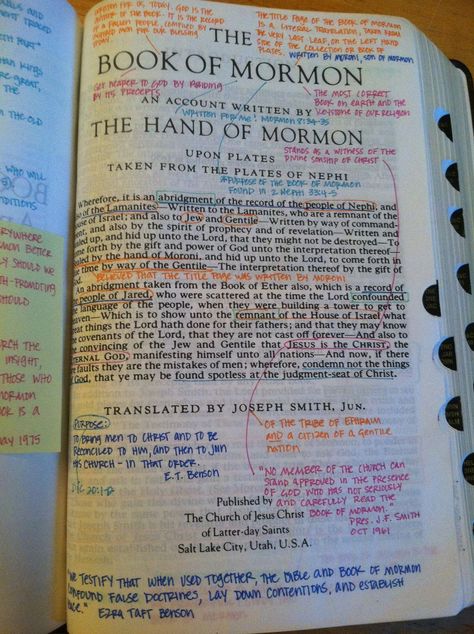 WRITTEN FOR US TODAY. GOD IS THE
AUTHOR OF THE BOOK. IT IS THE RECORD
OF A FALLEN PEOPLE, COMPILED BY
INSPIRED MEN FOR OUR BLESSING
TODAY.
THE TITLE PAGE OF THE BOOK OF MORMON
IS A LITERAL TRANSLATION, TAKEN FROM
THE VERY LAST LEAF, ON THE LEFT HAND
SIDE OF THE COLLECTION OR BOOK OF
PLATES. WRITTEN BY MORONI, SON OF MORMON
THE
BOOK OF MORMON
GET NEARER TO GOD BY ABIDING
BY ITS PRECEPTS
THE MOST CORRECT
BOOK ON EARTH AND THE
KEYSTONE OF OUR RELIGION
AN ACCOUNT WRITTEN BY
WRITTEN FOR ME! MORMON 8:34-35
THE HAND OF MORMON
STANDS AS A WITNESS OF THE
DIVINE SONSHIP OF CHRIST
UPON PLATES
TAKEN FROM THE PLATES OF NEPHI
PURPOSE OF THE BOOK OF MORMON
FOUND IN 2 NEPHI 33:4-5
Wherefore, it is an abridgment of the record of the people of Nephi, and
also of the Lamanites—Written to the Lamanites, who are a remnant of the
house of Israel; and also to Jew and Gentile—Written by way of command-
ment, and also by the spirit of prophecy and of revelation—Written and
sealed up, and hid up unto the Lord, that they might not be destroyed—To
come forth by the gift and power of God unto the interpretation thereof—
Sealed by the hand of Moroni, and hid up unto the Lord, to come forth in
due time by way of the Gentile—The interpretation thereof by the gift of
God.
BELIEVED THAT THE TITLE PAGE WAS WRITTEN BY MORONI
An abridgment taken from the Book of Ether also, which is a record of
the people of Jared, who were scattered at the time the Lord confounded
the language of the people, when they were building a tower to get to
heaven—Which is to show unto the remnant of the House of Israel what
great things the Lord hath done for their fathers; and that they may know
the covenants of the Lord, that they are not cast off forever—And also to
the convincing of the Jew and Gentile that JESUS is the CHRIST, the
ETERNAL GOD, manifesting himself unto all nations—And now, if there
are faults they are the mistakes of men; wherefore, condemn not the things
of God, that ye may be found spotless at the judgment-seat of Christ.
TRANSLATED BY JOSEPH SMITH, JUN.
PURPOSE:
TO BRING MEN TO CHRIST AND TO BE
RECONCILED TO HIM, AND THEN TO JOIN
HIS CHURCH - IN THAT ORDER.
E.T. BENSON
OF THE TRIBE OF EPHRAIM
AND A CITIZEN OF A GENTILE
NATION
"NO MEMBER OF THE CHURCH CAN
STAND APPROVED IN THE PRESENCE
OF GOD WHO HAS NOT SERIOUSLY
AND CAREFULLY READ THE
BOOK OF MORMON."
PRES. J.F. SMITH
OCT 1961
Published by
The Church of Jesus Christ
of Latter-day Saints
Salt Lake City, Utah, U.S.A.
"WE TESTIFY THAT WHEN USED TOGETHER, THE BIBLE AND BOOK OF MORMON
CONFOUND FALSE DOCTRINES, LAY DOWN CONTENTIONS, AND ESTABLISH
PEACE." EZRA TAFT BENSON